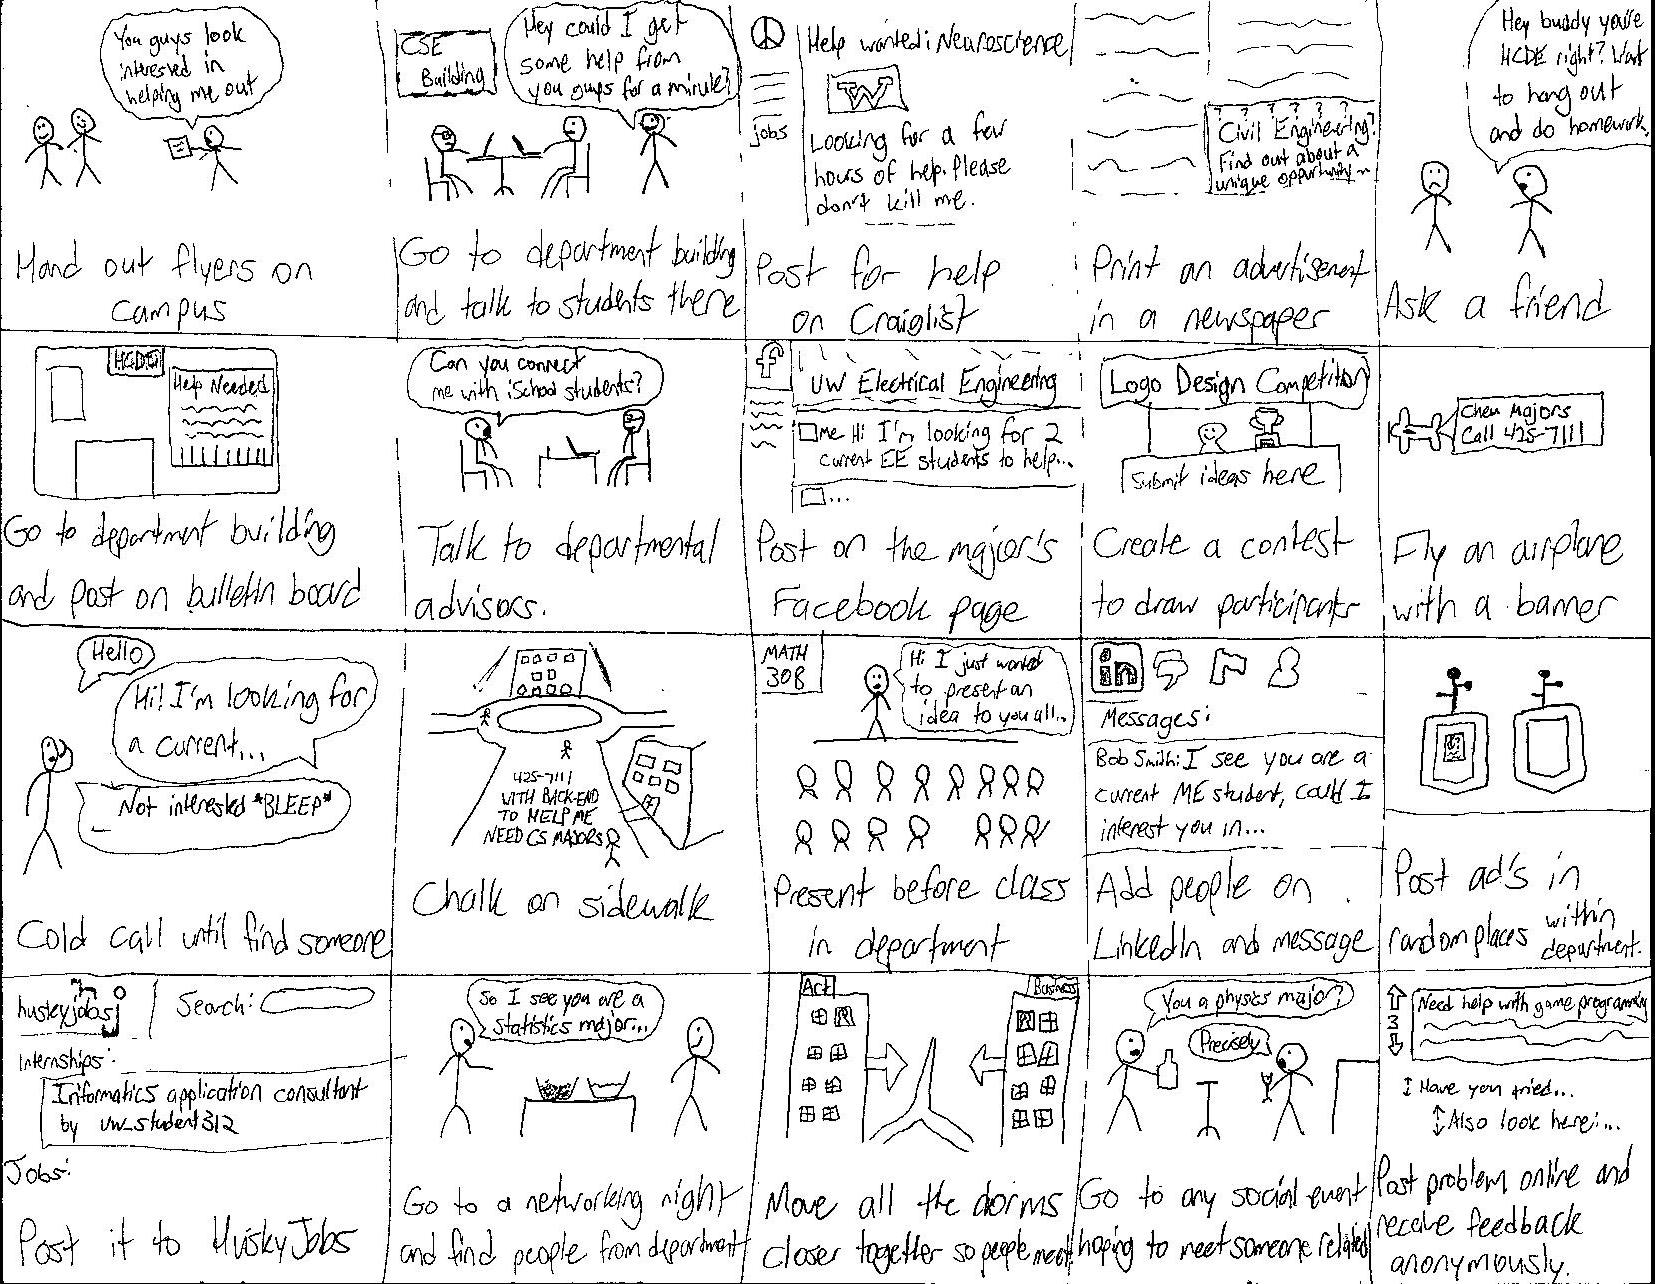 You guys look
interested in
helping me out
Hand out flyers on
campus
CSE
Building
Hey could I get
some help from
you guys for a minute?
Go to department building
and talk to students there
Help wanted: Neuroscience
W
jobs
Looking for a few
hours of help. Please
don't kill me.
Post for help
on Craiglist
? ? ? ? ? ?
Civil Engineering?
Find out about a
unique opportunity~
Print an advertisement
in a newspaper
Hey buddy you're
HCDE right? Want
to hang out
and do homework.
Ask a friend
HCDE
Help Needed
Go to department building
and post on bulletin board
Can you connect
me with iSchool students?
Talk to departmental
advisors.
f
UW Electrical Engineering
Me Hi I'm looking for 2
current EE students to help...
...
Post on the major's
Facebook page
Logo Design Competition
Submit ideas here
Create a contest
to draw participants
Chem Majors
Call 425-7111
Fly an airplane
with a banner
Hello
Hi! I'm looking for
a current...
Not interested *BLEEP*
Cold call until find someone
425-7111
WITH BACK-END
TO HELP ME
NEED CS MAJORS
Chalk on sidewalk
MATH
308
Hi I just wanted
to present an
idea to you all..
Present before class
in department
in
Messages:
Bob Smith: I see you are a
current ME student, could I
interest you in...
Add people on
LinkedIn and message
Post ad's in
random places within
department.
huskyjobs
Search:
Internships:
Informatics application consultant
by uw_student312
Jobs:
Post it to HuskyJobs
So I see you are a
statistics major...
Go to a networking night
and find people from department
Art
Business
Move all the dorms
closer together so people meet
You a physics major?
Precisely
Go to any social event
hoping to meet someone related
3
Need help with game programming
I Have you tried...
Also look here:...
Post problem online and
receive feedback
anonymously.